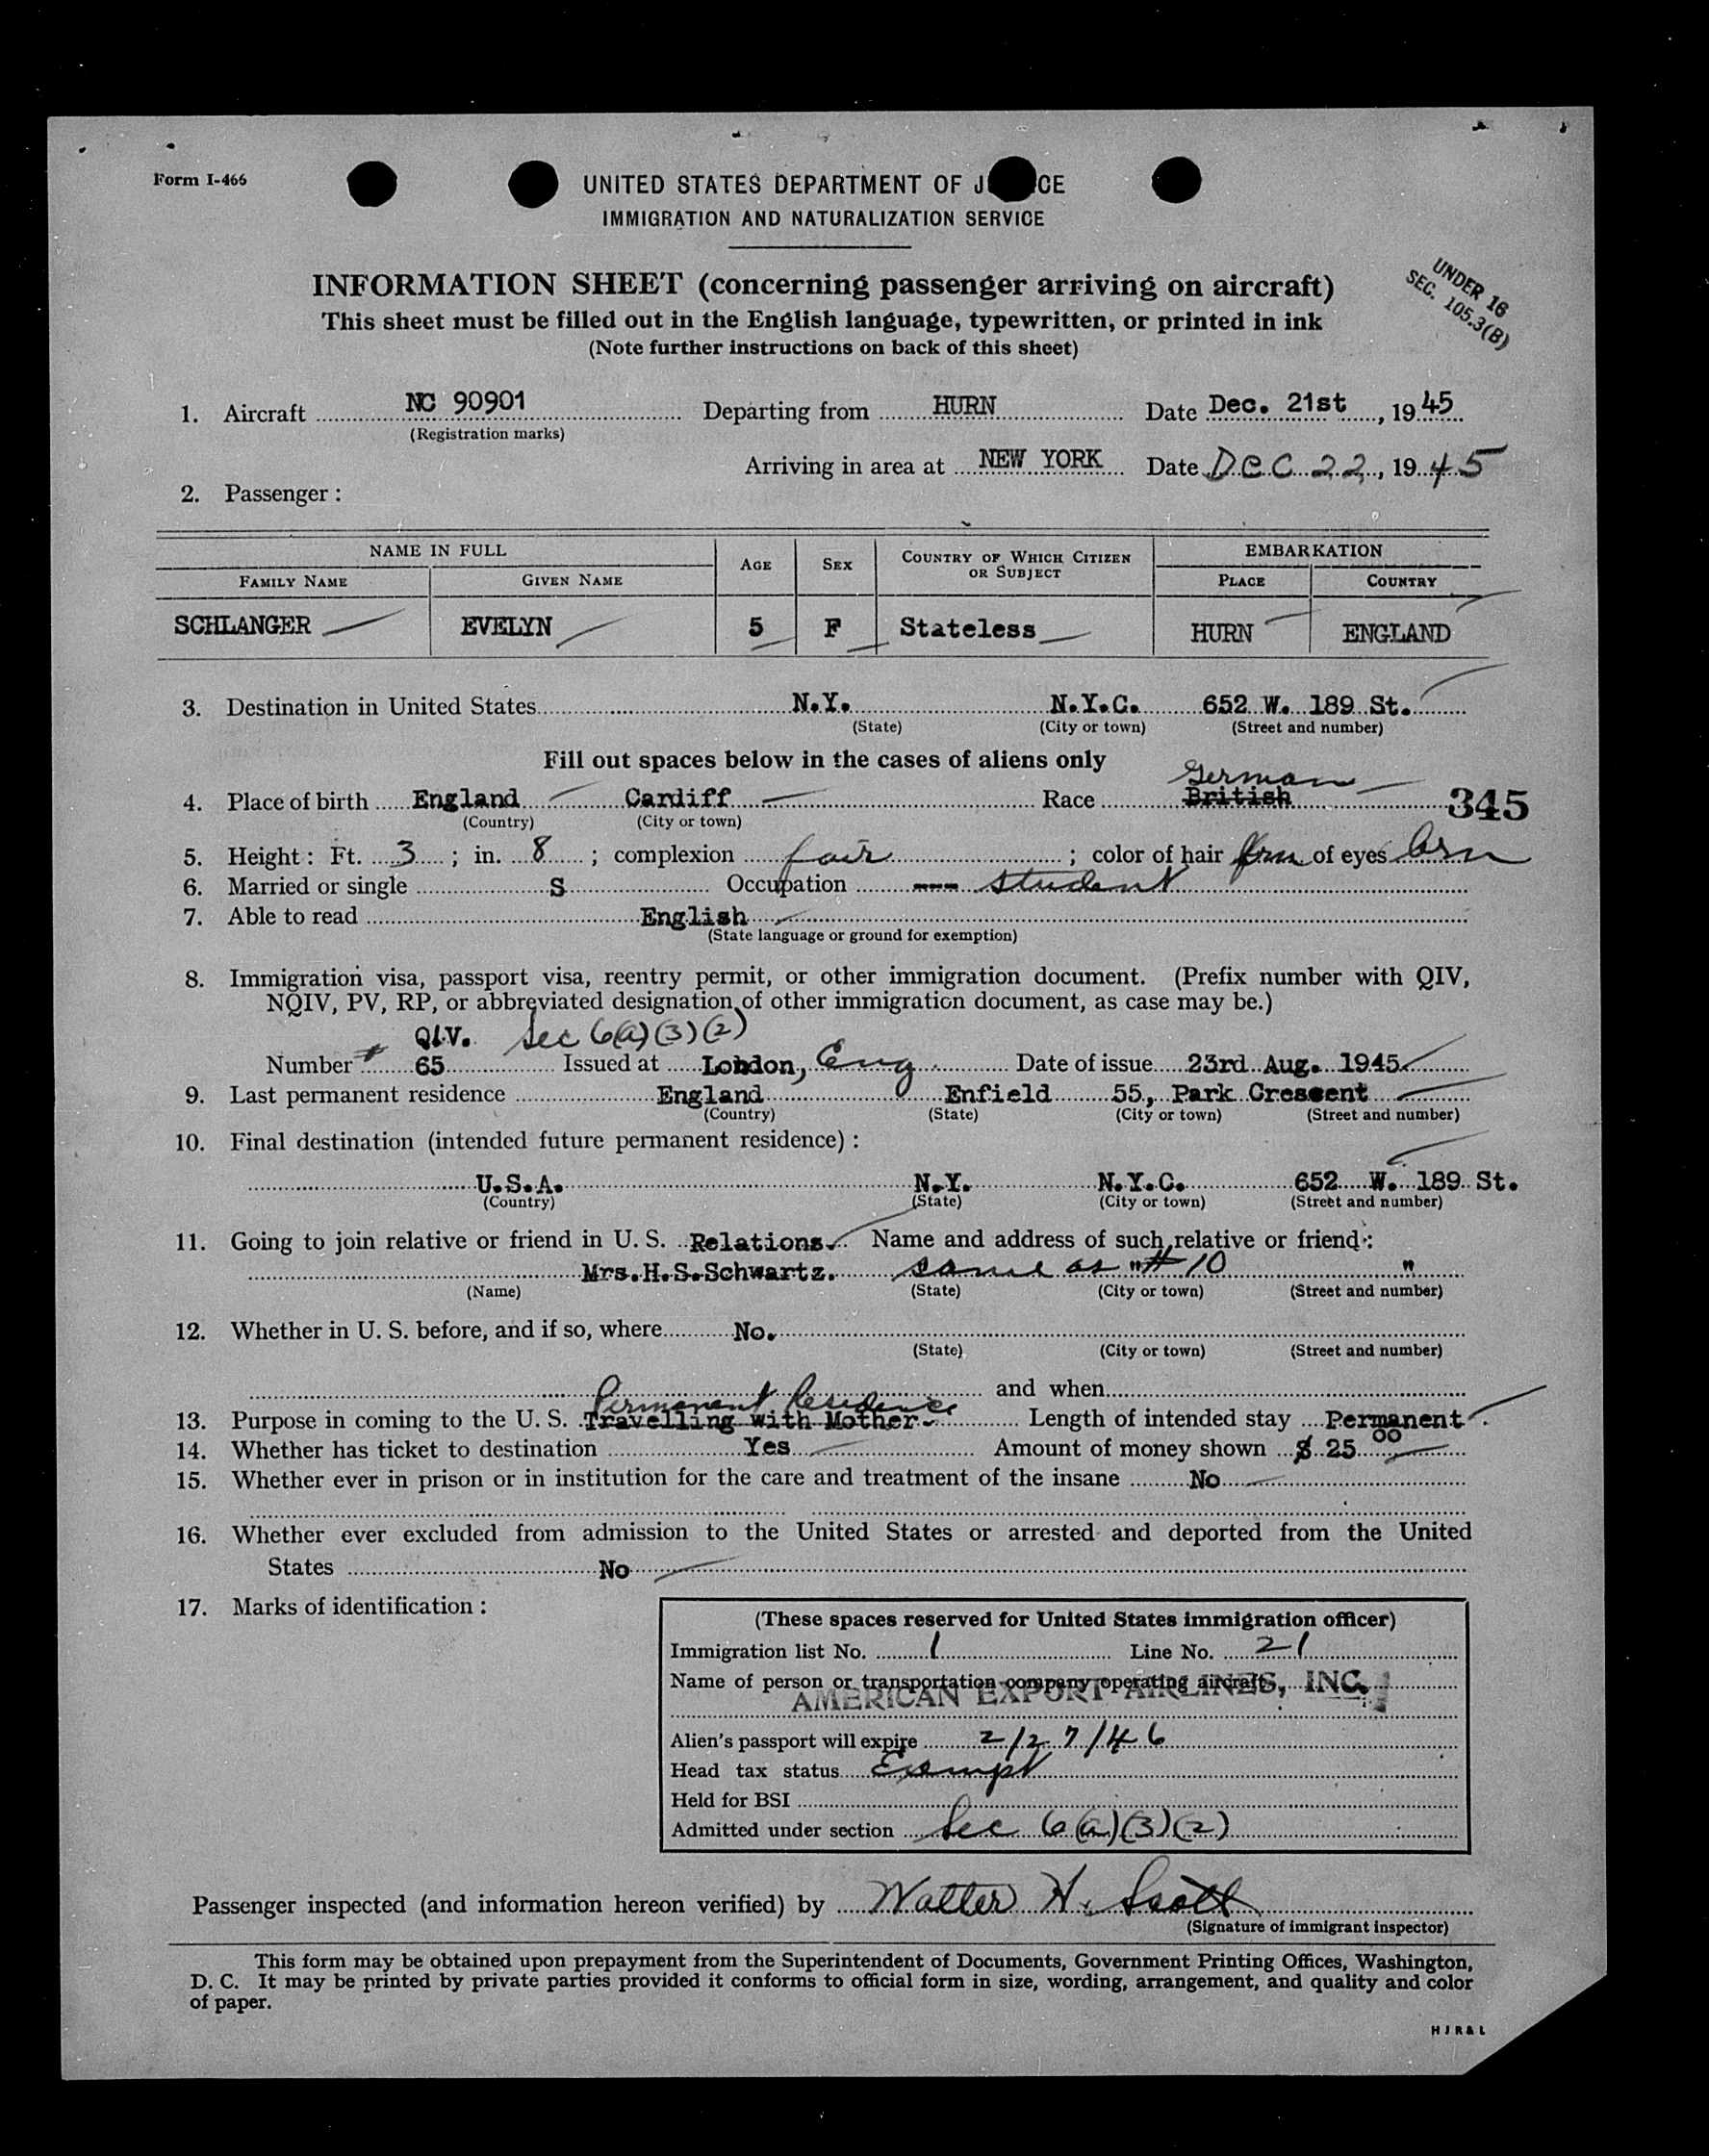 Form I-466
UNITED STATES DEPARTMENT OF J CE
IMMIGRATION AND NATURALIZATION SERVICE
INFORMATION SHEET (concerning passenger arriving on aircraft)
UNDER 16
SEC. 105.3(B)
This sheet must be filled out in the English language, typewritten, or printed in ink
(Note further instructions on back of this sheet)
1. Aircraft NC 90901 Departing from HURN Date Dec. 21st, 1945
(Registration marks)
Arriving in area at NEW YORK Date DEC 22, 1945
2. Passenger :
NAME IN FULL AGE SEX COUNTRY OF WHICH CITIZEN OR SUBJECT EMBARKATION
FAMILY NAME GIVEN NAME PLACE COUNTRY
SCHLANGER EVELYN 5 F Stateless HURN ENGLAND
3. Destination in United States N.Y. N.Y.C. 652 W. 189 St.
(State) (City or town) (Street and number)
Fill out spaces below in the cases of aliens only
German
4. Place of birth England Cardiff Race British 345
(Country) (City or town)
5. Height : Ft. 3 ; in. 8 ; complexion fair ; color of hair brn of eyes brn
6. Married or single S Occupation --- student
7. Able to read English
(State language or ground for exemption)
8. Immigration visa, passport visa, reentry permit, or other immigration document. (Prefix number with QIV,
NQIV, PV, RP, or abbreviated designation of other immigration document, as case may be.)
QIV. Sec 6(a)(3)(2)
Number # 65 Issued at London, Eng Date of issue 23rd Aug. 1945
9. Last permanent residence England Enfield 55, Park Crescent
(Country) (State) (City or town) (Street and number)
10. Final destination (intended future permanent residence) :
U.S.A. N.Y. N.Y.C. 652 W. 189 St.
(Country) (State) (City or town) (Street and number)
11. Going to join relative or friend in U. S. Relations. Name and address of such relative or friend :
Mrs.H.S.Schwartz. same as # 10 "
(Name) (State) (City or town) (Street and number)
12. Whether in U. S. before, and if so, where No.
(State) (City or town) (Street and number)
and when
Permanent Residence
13. Purpose in coming to the U. S. Travelling with Mother. Length of intended stay Permanent.
14. Whether has ticket to destination Yes Amount of money shown $ 25 00
15. Whether ever in prison or in institution for the care and treatment of the insane No
16. Whether ever excluded from admission to the United States or arrested and deported from the United
States No
17. Marks of identification :
(These spaces reserved for United States immigration officer)
Immigration list No. 1 Line No. 21
Name of person or transportation company operating aircraft
AMERICAN EXPORT AIRLINES, INC.
Alien's passport will expire 2/27/46
Head tax status Exempt
Held for BSI
Admitted under section Sec 6(a)(3)(2)
Passenger inspected (and information hereon verified) by Walter H. Scott
(Signature of immigrant inspector)
This form may be obtained upon prepayment from the Superintendent of Documents, Government Printing Offices, Washington,
D. C. It may be printed by private parties provided it conforms to official form in size, wording, arrangement, and quality and color
of paper.
H J R & L